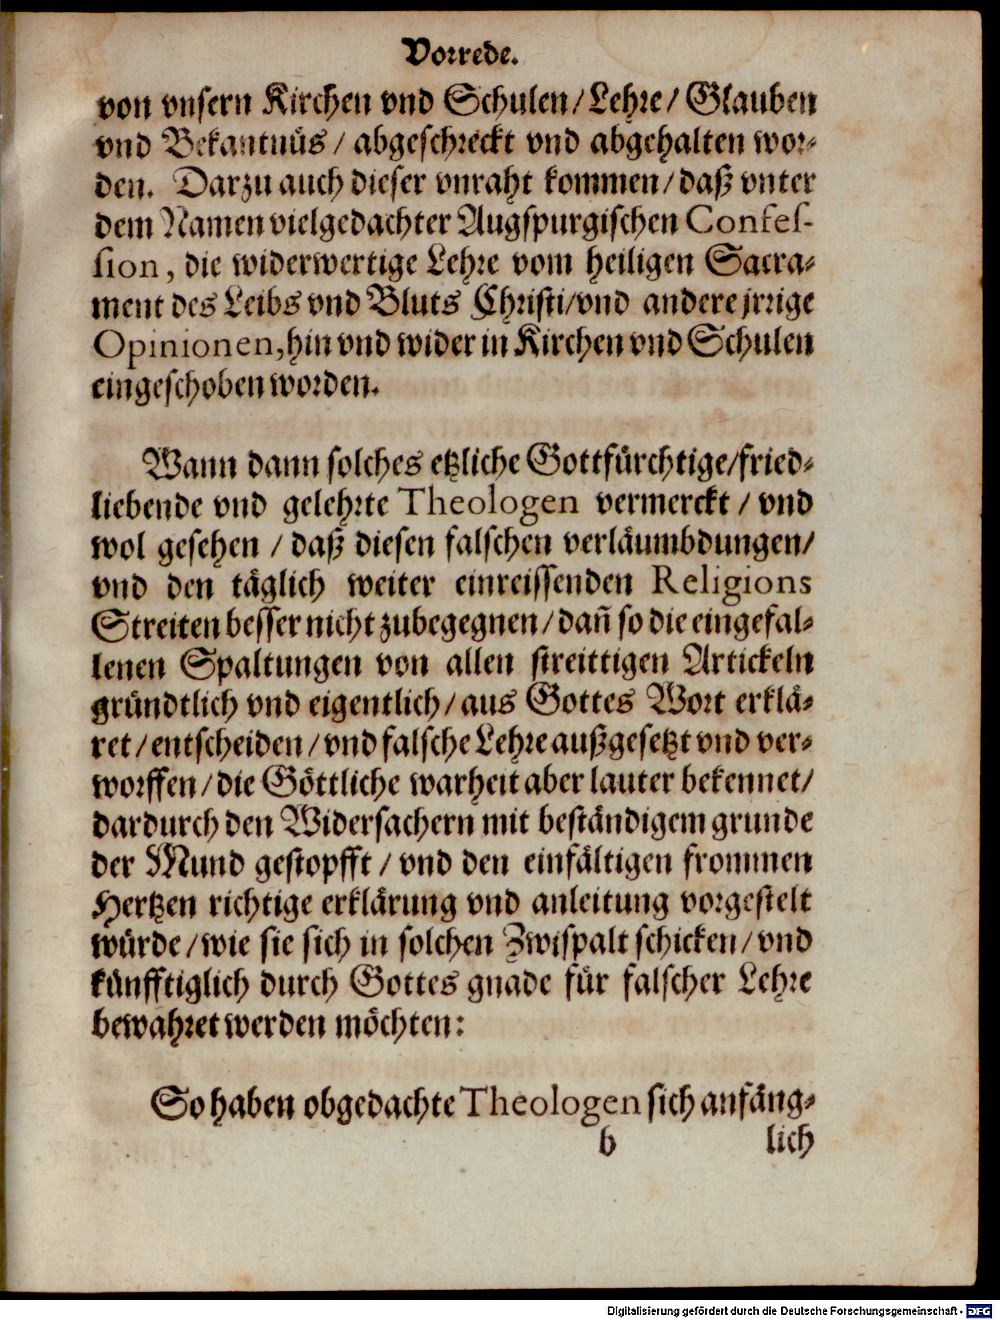 Vorrede.
von vnsern Kirchen vnd Schulen/Lehre/ Glauben
vnd Bekantnüs/ abgeschreckt vnd abgehalten wor-
den. Darzu auch dieser vnraht kommen/daß vnter
dem Namen vielgedachter Augspurgischen Confes-
sion, die widerwertige Lehre vom heiligen Sacra-
ment des Leibs vnd Bluts Christi/vnd andere jrrige
Opinionen, hin vnd wider in Kirchen vnd Schulen
eingeschoben worden.
Wann dann solches etzliche Gottfürchtige/fried-
liebende vnd gelehrte Theologen vermerckt/vnd
wol gesehen/daß diesen falschen verläumbdungen/
vnd den täglich weiter einreissenden Religions
Streiten besser nicht zubegegnen/dañ so die eingefal-
lenen Spaltungen von allen streittigen Artickeln
gründtlich vnd eigentlich/aus Gottes Wort erklä-
ret/entscheiden/vnd falsche Lehre außgesetzt vnd ver-
worffen/die Göttliche warheit aber lauter bekennet/
dardurch den Widersachern mit beständigem grunde
der Mund gestopfft/vnd den einfältigen frommen
Hertzen richtige erklärung vnd anleitung vorgestelt
würde/wie sie sich in solchen Zwispalt schicken/vnd
künfftiglich durch Gottes gnade für falscher Lehre
bewahret werden möchten:
So haben obgedachte Theologen sich anfäng-
b lich
Digitalisierung gefördert durch die Deutsche Forschungsgemeinschaft - DFG